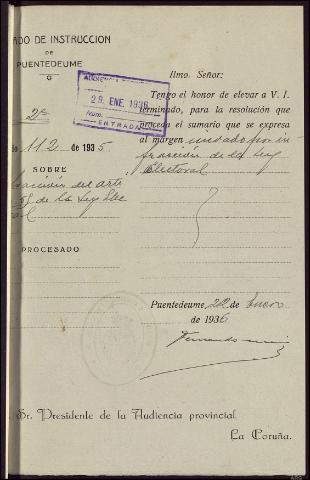 ADO DE INSTRUCCION
DE
PUENTEDEUME
2ª
112 de 1935.
SOBRE
del arte
de la Ley Elec
ral
PROCESADO
AUDIENCIA
29 ENE. 1936
Núm.
ENTRADA
Ilmo. Señor:
Tengo el honor de elevar a V. I.
terminado, para la resolución que
proceda el sumario que se expresa
al margen instado por in-
fracción de la Ley
Electoral
Puentedeume, 22 de Enero
de 1936
Fernando
Sr. Presidente de la Audiencia provincial
La Coruña.